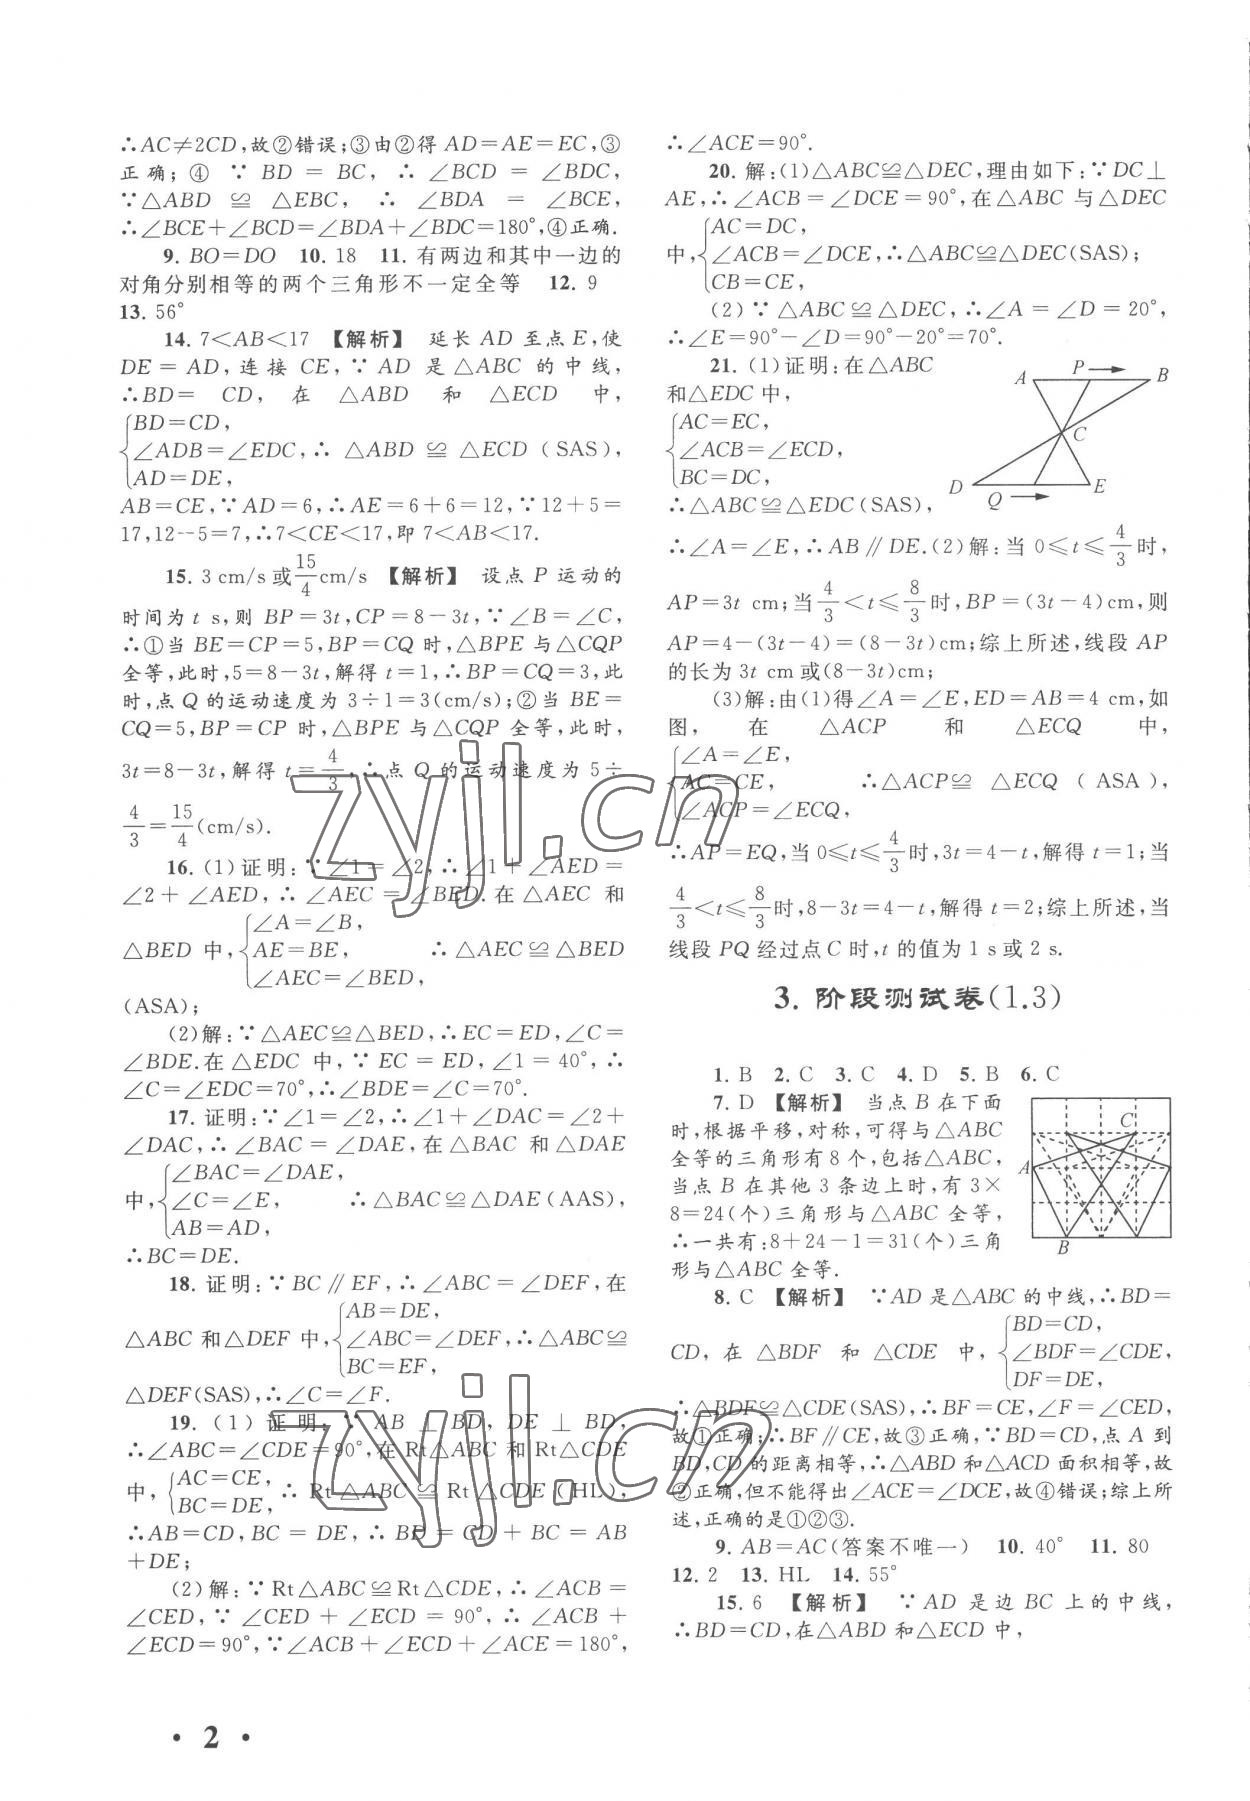 ∴AC≠2CD,故②错误;③由②得 AD=AE=EC,③
正确;④ ∵ BD = BC, ∴ ∠BCD = ∠BDC,
∵△ABD ≌ △EBC, ∴ ∠BDA = ∠BCE,
∴∠BCE+∠BCD=∠BDA+∠BDC=180°,④正确.
9. BO=DO 10. 18 11. 有两边和其中一边的
对角分别相等的两个三角形不一定全等 12. 9
13. 56°
14. 7<AB<17 【解析】 延长 AD 至点 E,使
DE = AD, 连接 CE, ∵ AD 是 △ABC 的中线,
∴BD= CD, 在 △ABD 和 △ECD 中,
BD=CD,
∠ADB=∠EDC,∴ △ABD ≌ △ECD (SAS),
AD=DE,
AB=CE,∵AD=6,∴AE=6+6=12,∵12+5=
17,12--5=7,∴7<CE<17,即 7<AB<17.
15. 3 cm/s 或15/4 cm/s 【解析】 设点 P 运动的
时间为 t s,则 BP=3t,CP=8-3t,∵∠B=∠C,
∴①当 BE=CP=5,BP=CQ 时,△BPE 与△CQP
全等,此时,5=8-3t,解得 t=1,∴BP=CQ=3,此
时,点 Q 的运动速度为 3÷1=3(cm/s);②当 BE=
CQ=5,BP=CP 时,△BPE 与△CQP 全等,此时,
3t=8-3t,解得 t=4/3,∴点 Q 的运动速度为 5÷
4/3=15/4(cm/s).
16. (1)证明:∵∠1=∠2,∴∠1+∠AED=
∠2+∠AED,∴∠AEC=∠BED.在△AEC 和
∠A=∠B,
△BED 中,AE=BE, ∴△AEC≌△BED
∠AEC=∠BED,
(ASA);
(2)解:∵△AEC≌△BED,∴EC=ED,∠C=
∠BDE.在△EDC 中,∵EC=ED,∠1=40°,∴
∠C=∠EDC=70°,∴∠BDE=∠C=70°.
17. 证明:∵∠1=∠2,∴∠1+∠DAC=∠2+
∠DAC,∴∠BAC=∠DAE,在△BAC 和△DAE
∠BAC=∠DAE,
中,∠C=∠E, ∴△BAC≌△DAE(AAS),
AB=AD,
∴BC=DE.
18. 证明:∵BC∥EF,∴∠ABC=∠DEF,在
AB=DE,
△ABC 和△DEF 中,∠ABC=∠DEF,∴△ABC≌
BC=EF,
△DEF(SAS),∴∠C=∠F.
19. (1) 证明:∵ AB ⊥ BD, DE ⊥ BD,
∴∠ABC=∠CDE=90°,在 Rt△ABC 和 Rt△CDE
AC=CE,
中, ∴ Rt△ABC ≌ Rt△CDE (HL),
BC=DE,
∴AB=CD,BC=DE,∴BD=CD+BC=AB
+DE;
(2)解:∵Rt△ABC≌Rt△CDE,∴∠ACB=
∠CED,∵∠CED+∠ECD=90°,∴∠ACB+
∠ECD=90°,∵∠ACB+∠ECD+∠ACE=180°,
∴∠ACE=90°.
20. 解:(1)△ABC≌△DEC,理由如下:∵DC⊥
AE,∴∠ACB=∠DCE=90°,在△ABC 与△DEC
AC=DC,
中,∠ACB=∠DCE,∴△ABC≌△DEC(SAS);
CB=CE,
(2)∵△ABC≌△DEC,∴∠A=∠D=20°,
∴∠E=90°-∠D=90°-20°=70°.
21. (1)证明:在△ABC
和△EDC 中,
AC=EC,
∠ACB=∠ECD,
BC=DC,
∴△ABC≌△EDC(SAS),
A P B
C
D Q E
∴∠A=∠E,∴AB∥DE.(2)解:当 0≤t≤4/3时,
AP=3t cm;当4/3<t≤8/3时,BP=(3t-4)cm,则
AP=4-(3t-4)=(8-3t)cm;综上所述,线段 AP
的长为 3t cm 或(8-3t)cm;
(3)解:由(1)得∠A=∠E,ED=AB=4 cm,如
图, 在 △ACP 和 △ECQ 中,
∠A=∠E,
AC=CE, ∴△ACP≌ △ECQ (ASA),
∠ACP=∠ECQ,
∴AP=EQ,当 0≤t≤4/3时,3t=4-t,解得 t=1;当
4/3<t≤8/3时,8-3t=4-t,解得 t=2;综上所述,当
线段 PQ 经过点 C 时,t 的值为 1 s 或 2 s.
3. 阶段测试卷(1.3)
1. B 2. C 3. C 4. D 5. B 6. C
7. D 【解析】 当点 B 在下面
时,根据平移,对称,可得与△ABC
全等的三角形有 8 个,包括△ABC,
当点 B 在其他 3 条边上时,有 3×
8=24(个)三角形与△ABC 全等,
∴一共有:8+24-1=31(个)三角
形与△ABC 全等.
C
A
B
8. C 【解析】 ∵AD 是△ABC 的中线,∴BD=
BD=CD,
CD, 在 △BDF 和 △CDE 中,∠BDF=∠CDE,
DF=DE,
∴△BDF≌△CDE(SAS),∴BF=CE,∠F=∠CED,
故①正确;∴BF∥CE,故③正确,∵BD=CD,点 A 到
BD,CD 的距离相等,∴△ABD 和△ACD 面积相等,故
②正确,但不能得出∠ACE=∠DCE,故④错误;综上所
述,正确的是①②③.
9. AB=AC(答案不唯一) 10. 40° 11. 80
12. 2 13. HL 14. 55°
15. 6 【解析】 ∵AD 是边 BC 上的中线,
∴BD=CD,在△ABD 和△ECD 中,
• 2 •
zyjl.cn
zyjl.cn